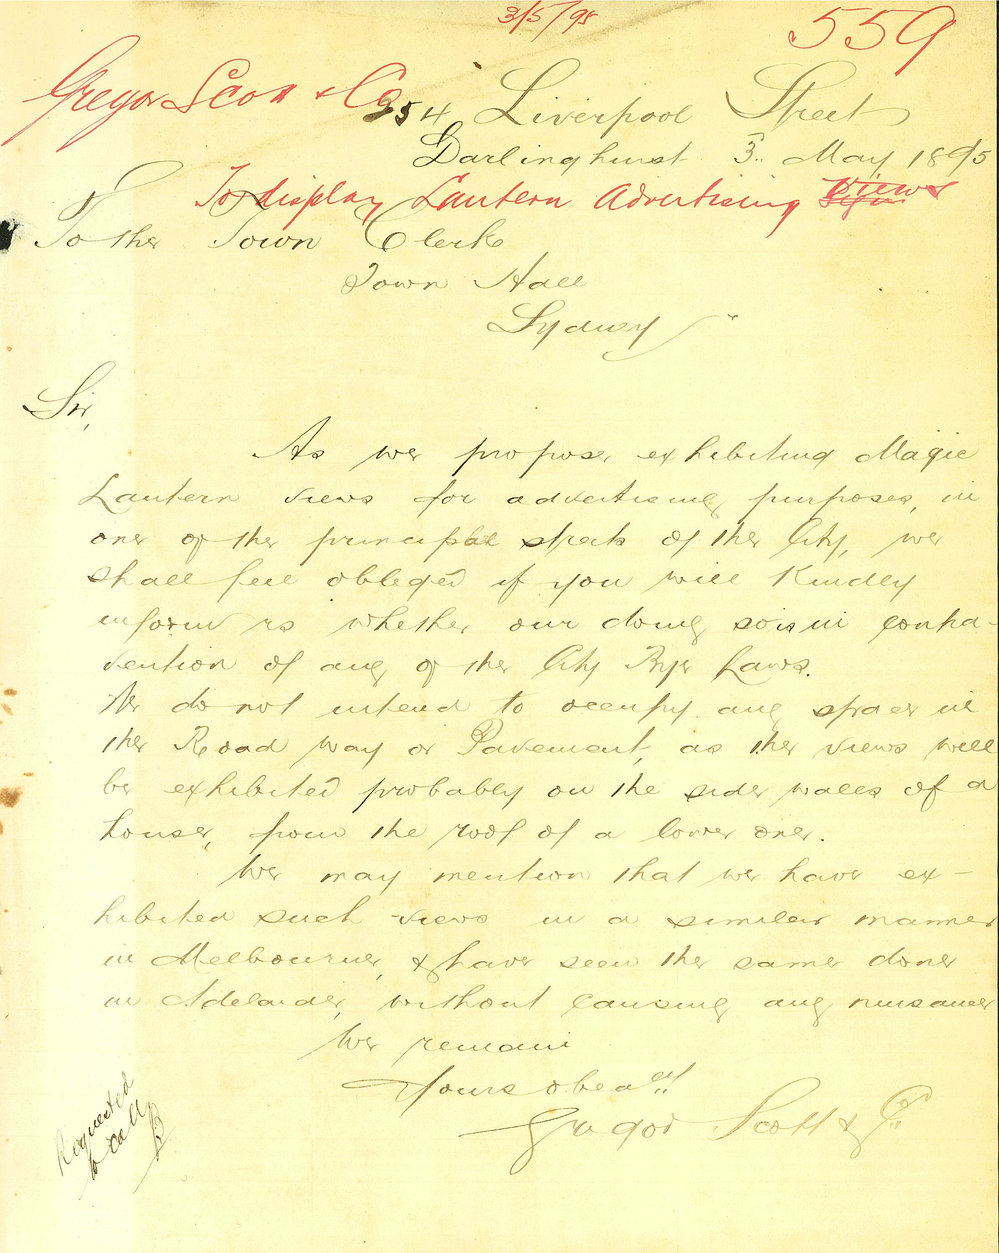 3/5/95
559
Gregor Scott & Co
254 Liverpool Street
Darlinghurst 3.. May 1895
To display Lantern Advertising Views
To the Town Clerk
Town Hall
Sydney
Sir,
As we propose exhibiting Magic
Lantern views for advertising purposes, in
one of the principal streets of the City, we
shall feel obliged if you will kindly
inform us whether our doing so is in contra-
vention of any of the City Bye Laws.
We do not intend to occupy any space in
the Road way or Pavement, as the views will
be exhibited probably on the side walls of a
house, from the roof of a lower one.
We may mention that we have ex-
hibited such views in a similar manner
in Melbourne, & have seen the same done
in Adelaide, without causing any nuisance
We remain
Yours obedt
Gregor Scott & Co
Requested
to call